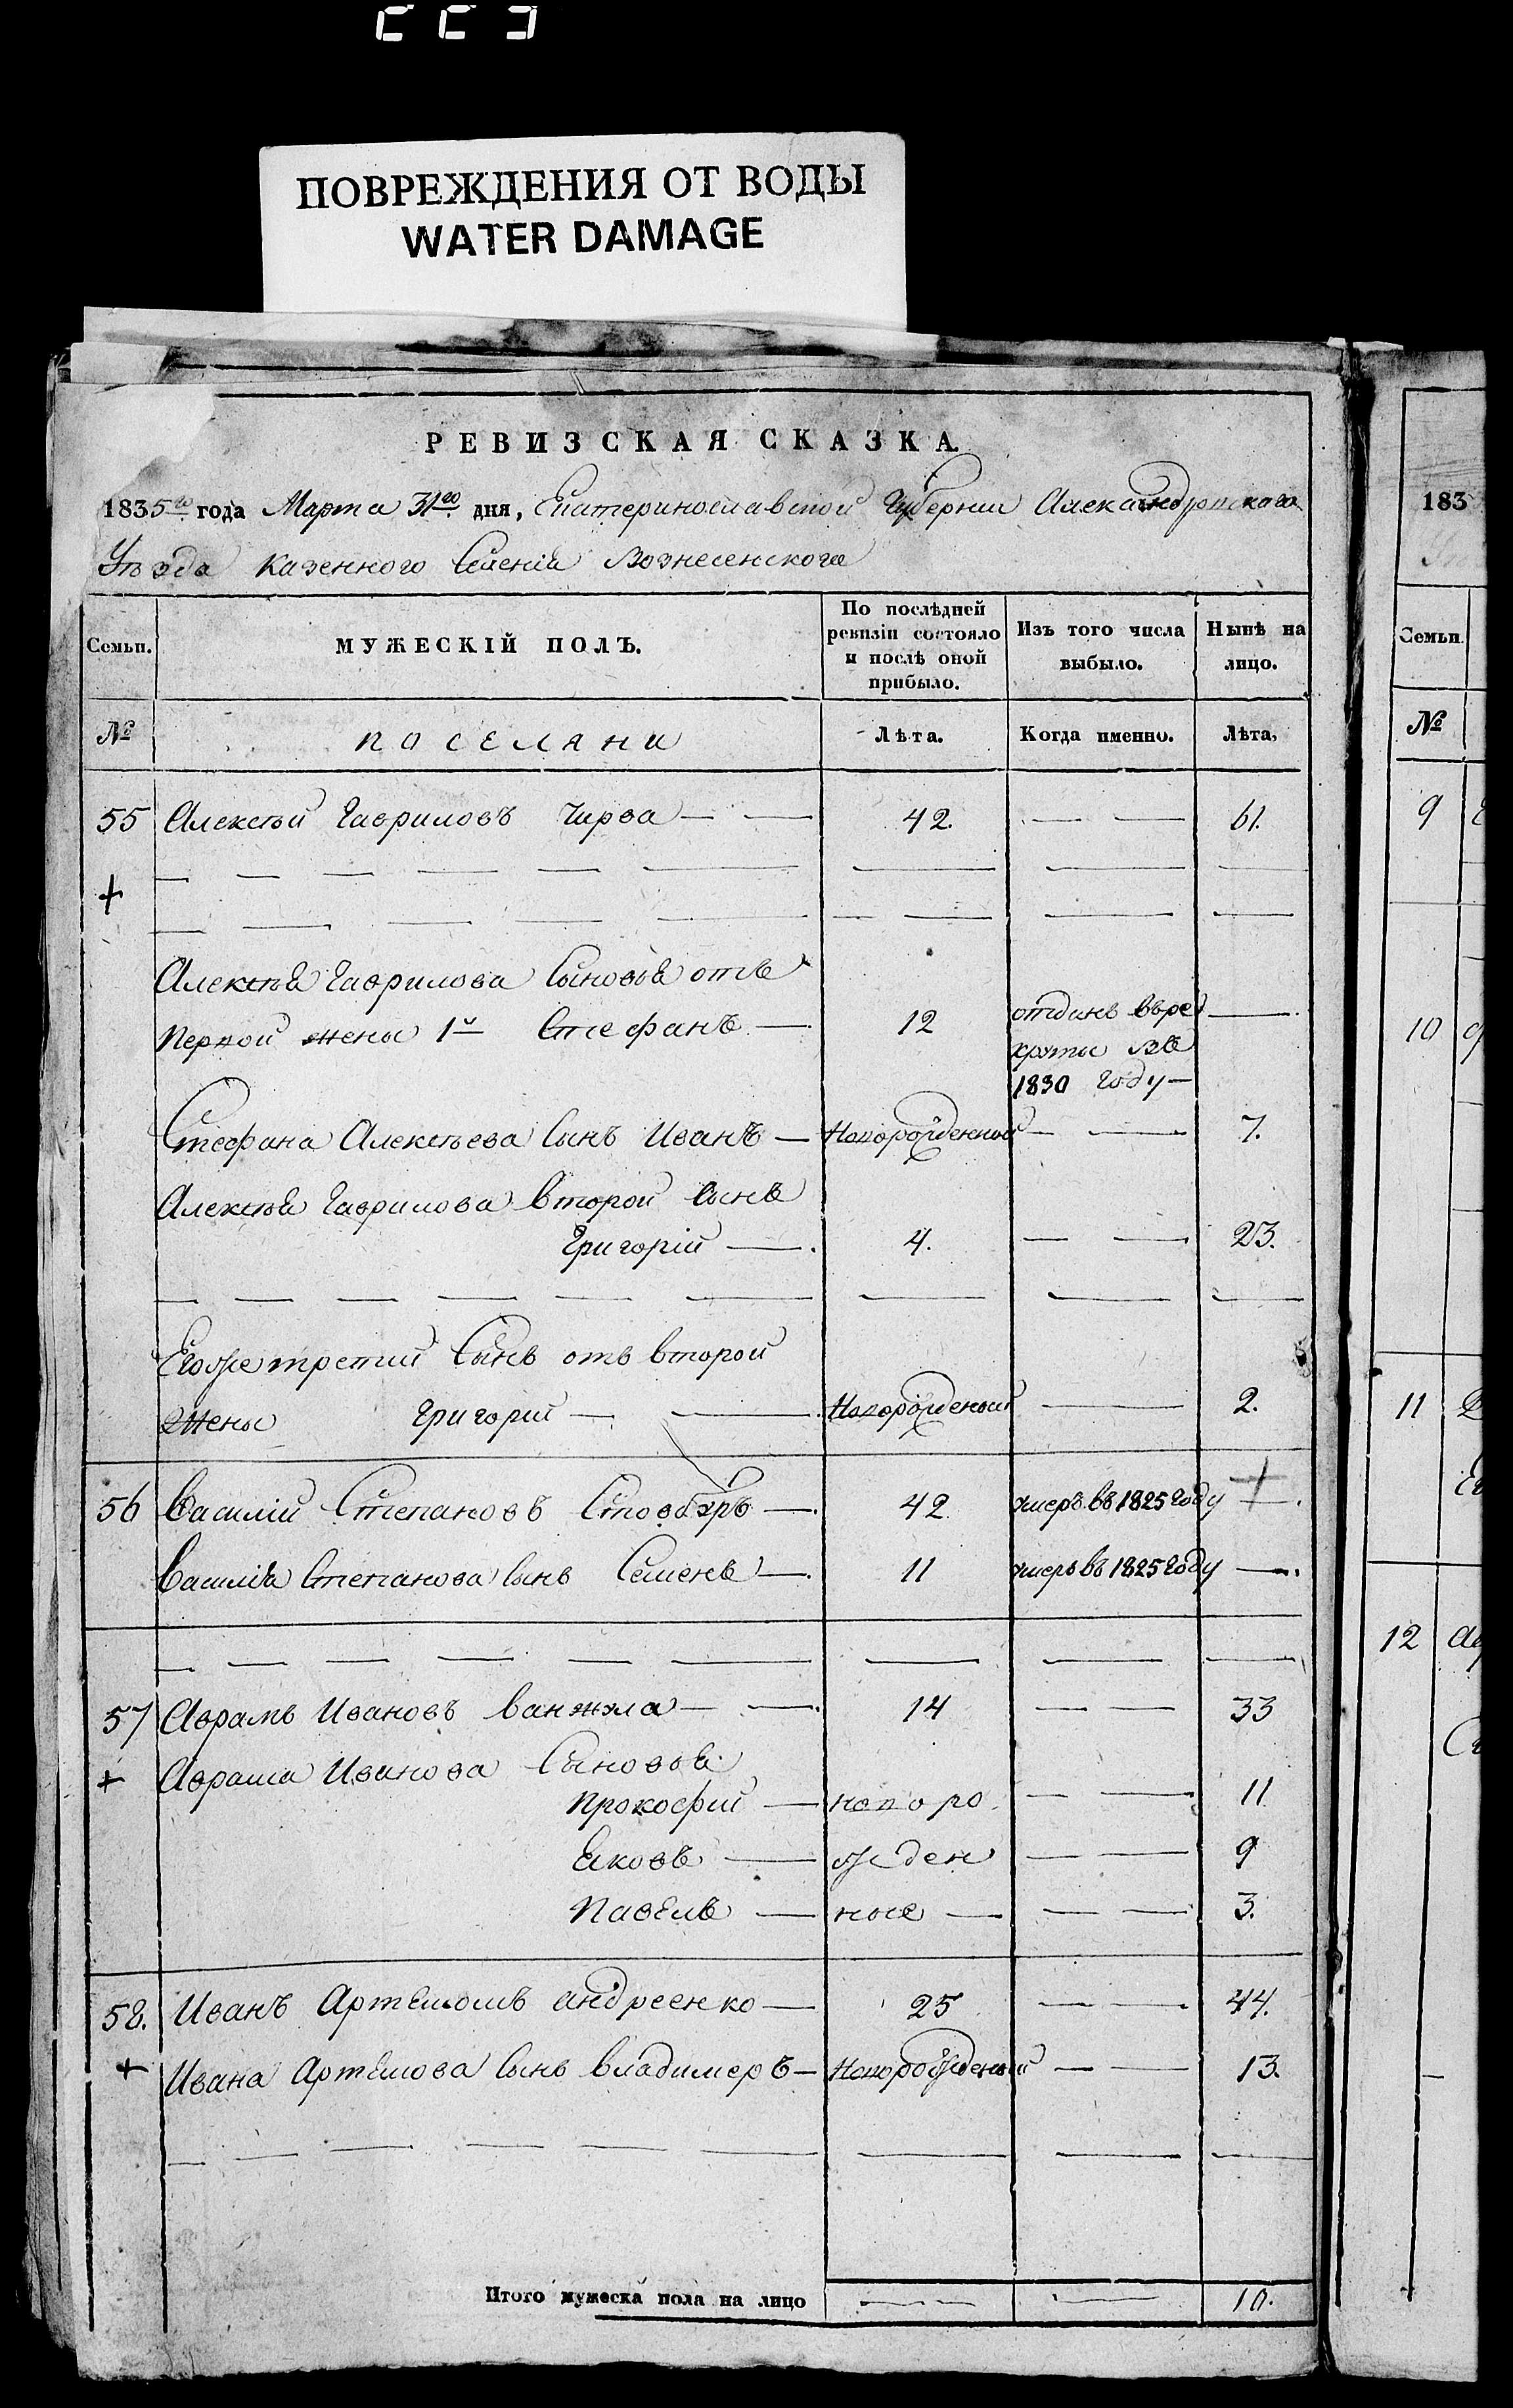 ПОВРЕЖДЕНИЯ ОТ ВОДЫ
WATER DAMAGE
РЕВИЗСКАЯ СКАЗКА.
1835го года Марта 31го дня, Екатеринославской Губернии Александровского
Уѣзда казенного Селенія Вознесенского
Семьи. МУЖЕСКІЙ ПОЛЪ. По послѣдней ревизіи состояло и послѣ оной прибыло. Изъ того числа выбыло. Нынѣ на лицо.
№ поселяни Лѣта. Когда именно. Лѣта,
55 Алексѣй Гавриловъ Чирва 42. 61.
+
Алексѣя Гаврилова Сыновья отъ
первой жены 1й Стефанъ 12 отданъ въ рекруты въ 1830 году
Стефана Алексѣева Сынъ Иванъ Новорожденный 7.
Алексѣя Гаврилова второй Сынъ
Григорій 4. 23.
Егоже третий Сынъ отъ второй
жены Григорий Новорожденый 2.
56 Василій Степановъ 42 умеръ въ 1825 году +
Василія Степанова Сынъ Семенъ 11 умеръ въ 1825 году
57 Аврамъ Ивановъ Ванжула 14 33
+ Аврама Иванова Сыновья
Прокофий новоро 11
Яковъ жден 9
Павелъ ные 3.
58. Иванъ Артемовъ Андреенко 25 44.
+ Ивана Артемова Сынъ Владимеръ Новорожденый 13.
Итого мужеска пола на лицо 10.
183
Семьи.
№
9
10
11
12